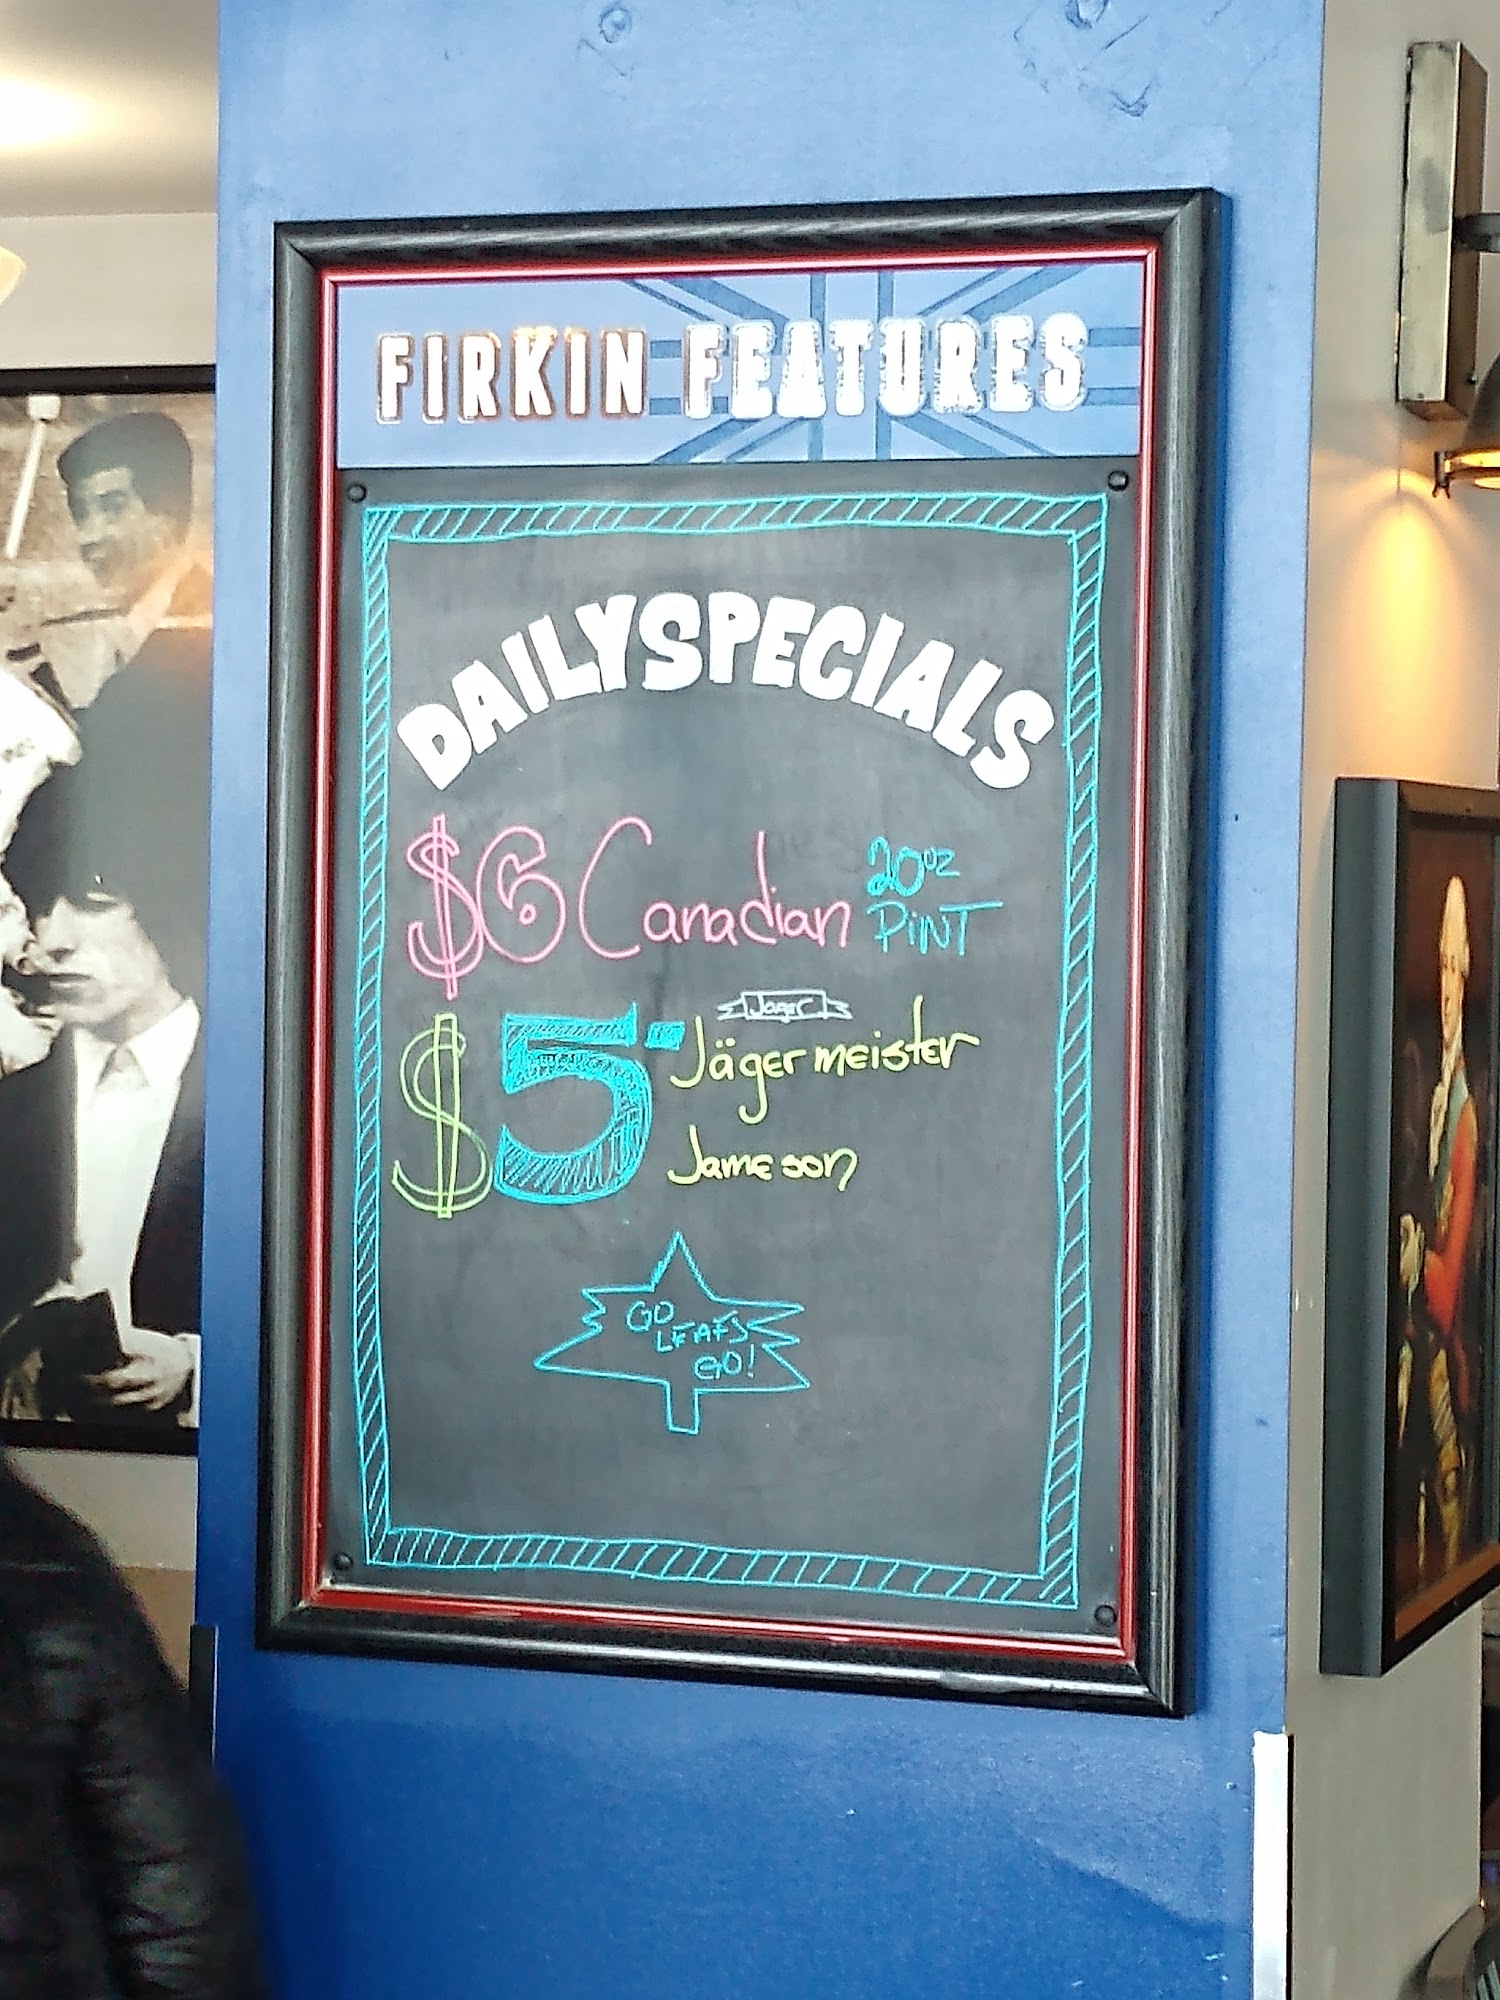 FIRKIN FEATURES
DAILY SPECIALS
$6 Canadian 20oz PiNT
Jager
$5 Jägermeister
Jameson
GO
LEAFS
GO!